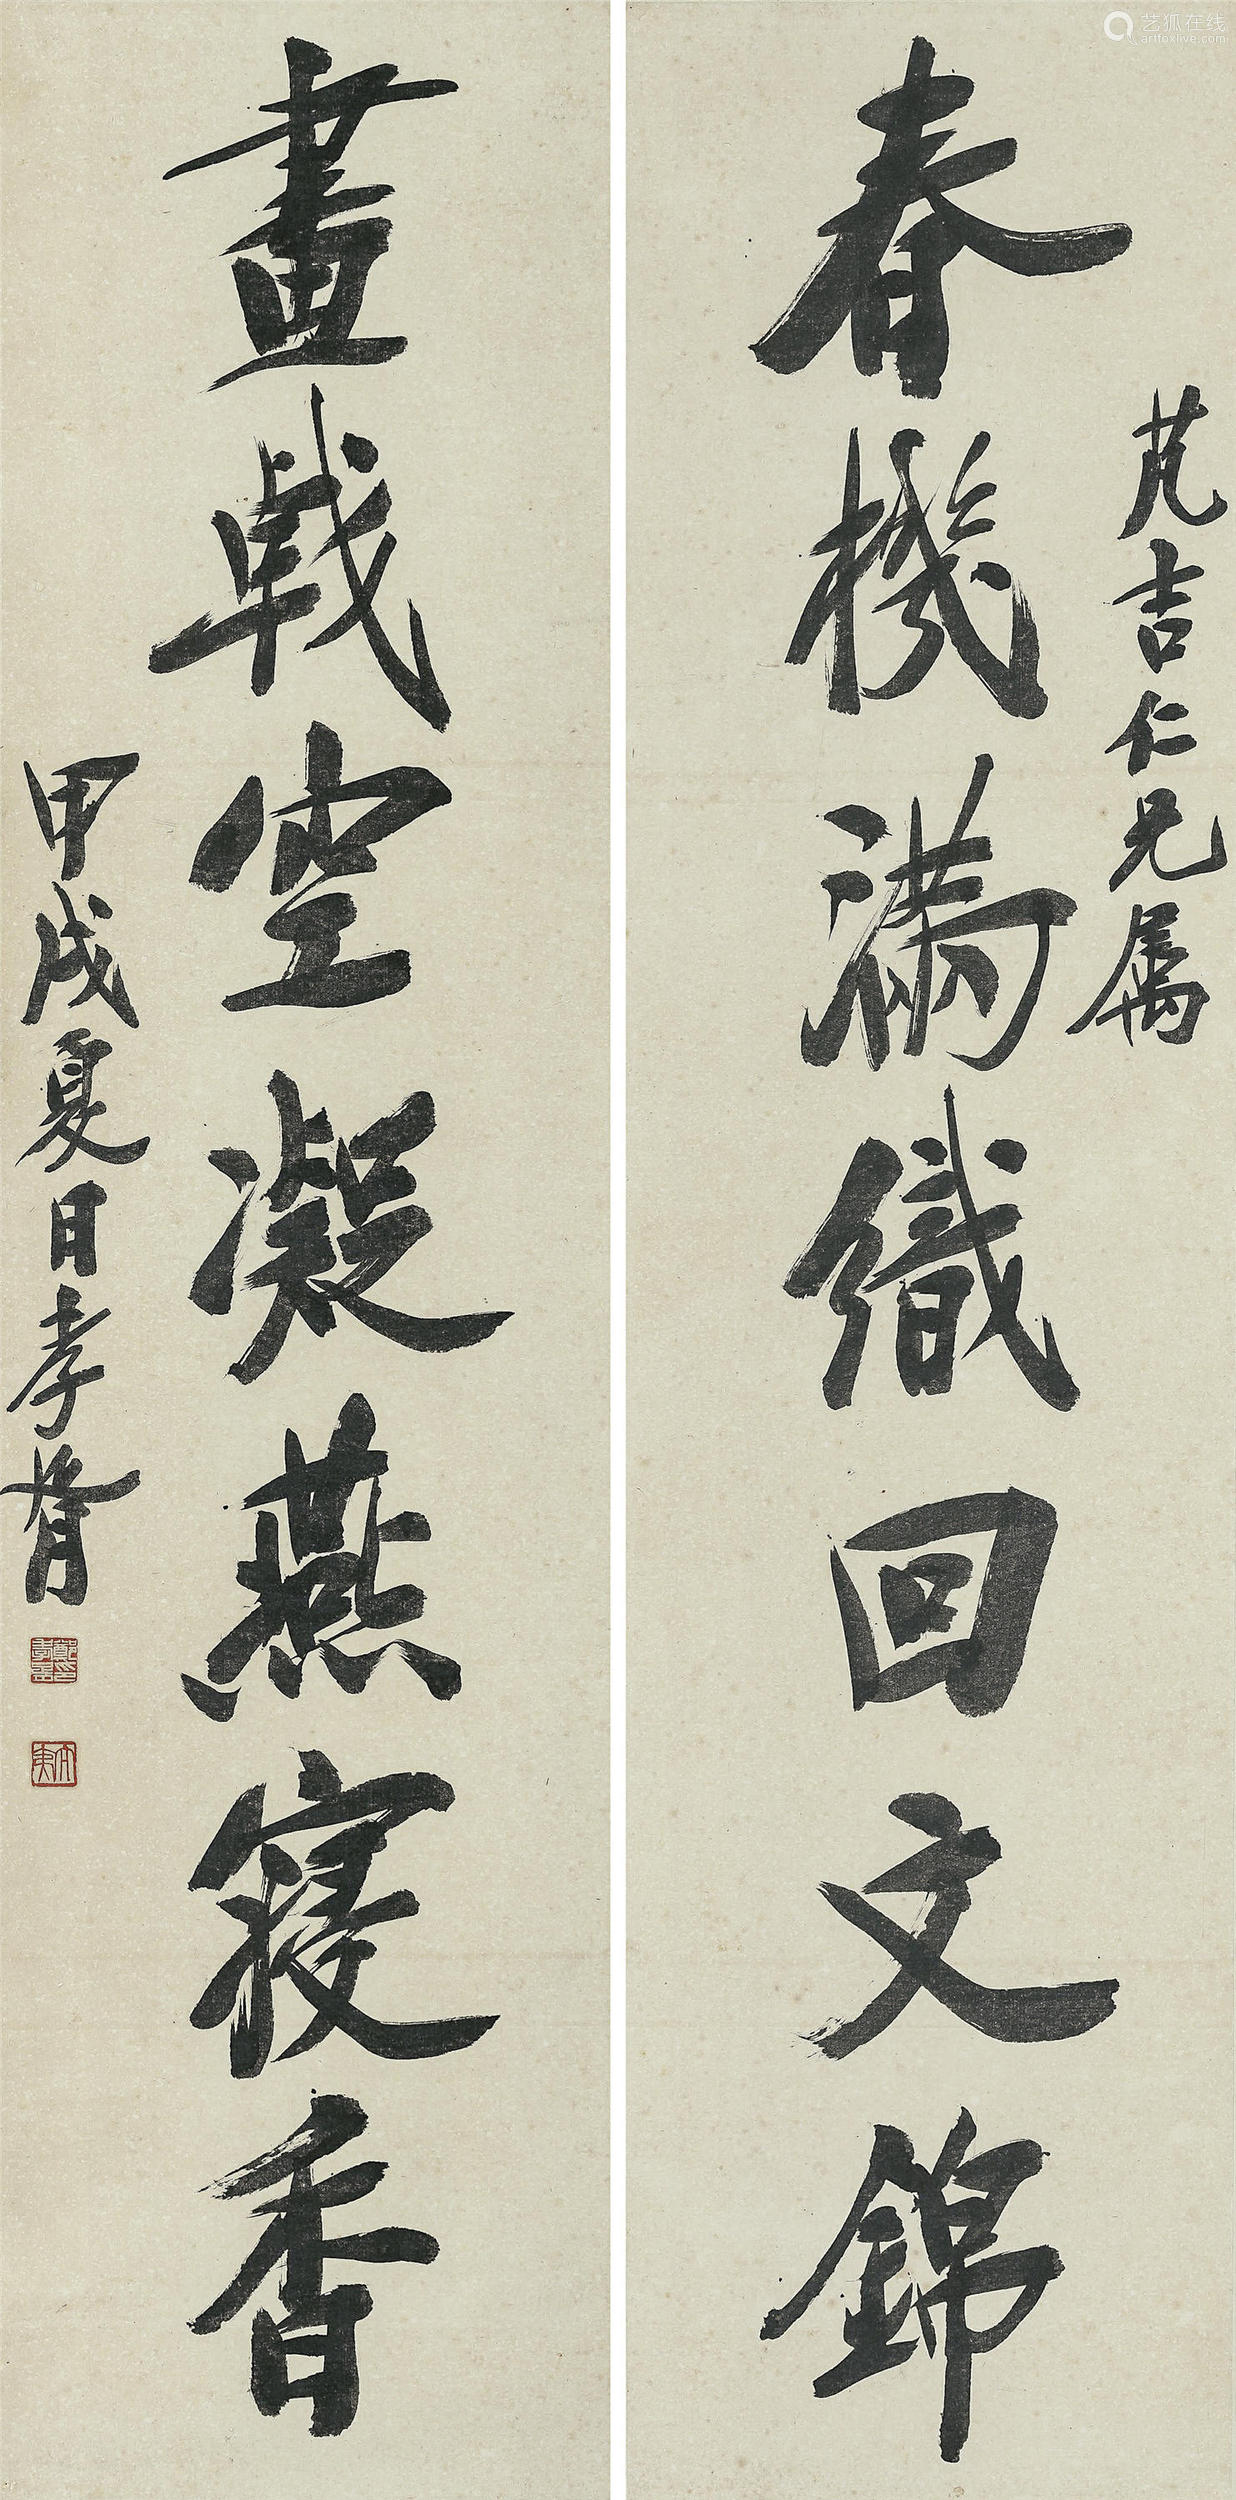 艺狐在线
artfoxlive.com
芃吉仁兄属
春機滿織回文錦
畫戟空凝燕寢香
甲戌夏日孝胥
鄭印孝胥